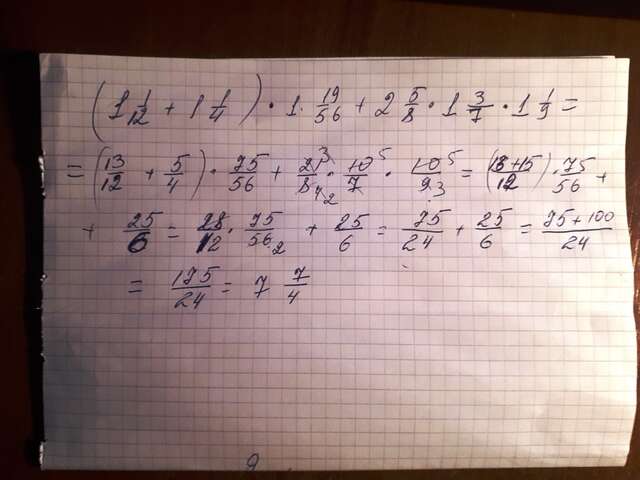 (1 1/12 + 1 1/4) · 1 · 19/56 + 2 5/8 · 1 3/7 · 1 1/9 =
= (13/12 + 5/4) · 75/56 + 21/8 · 10/7 · 10/9 = (13+15)/12 · 75/56 +
+ 25/6 = 28/12 · 75/56 + 25/6 = 75/24 + 25/6 = 75+100/24
= 175/24 = 7 7/4